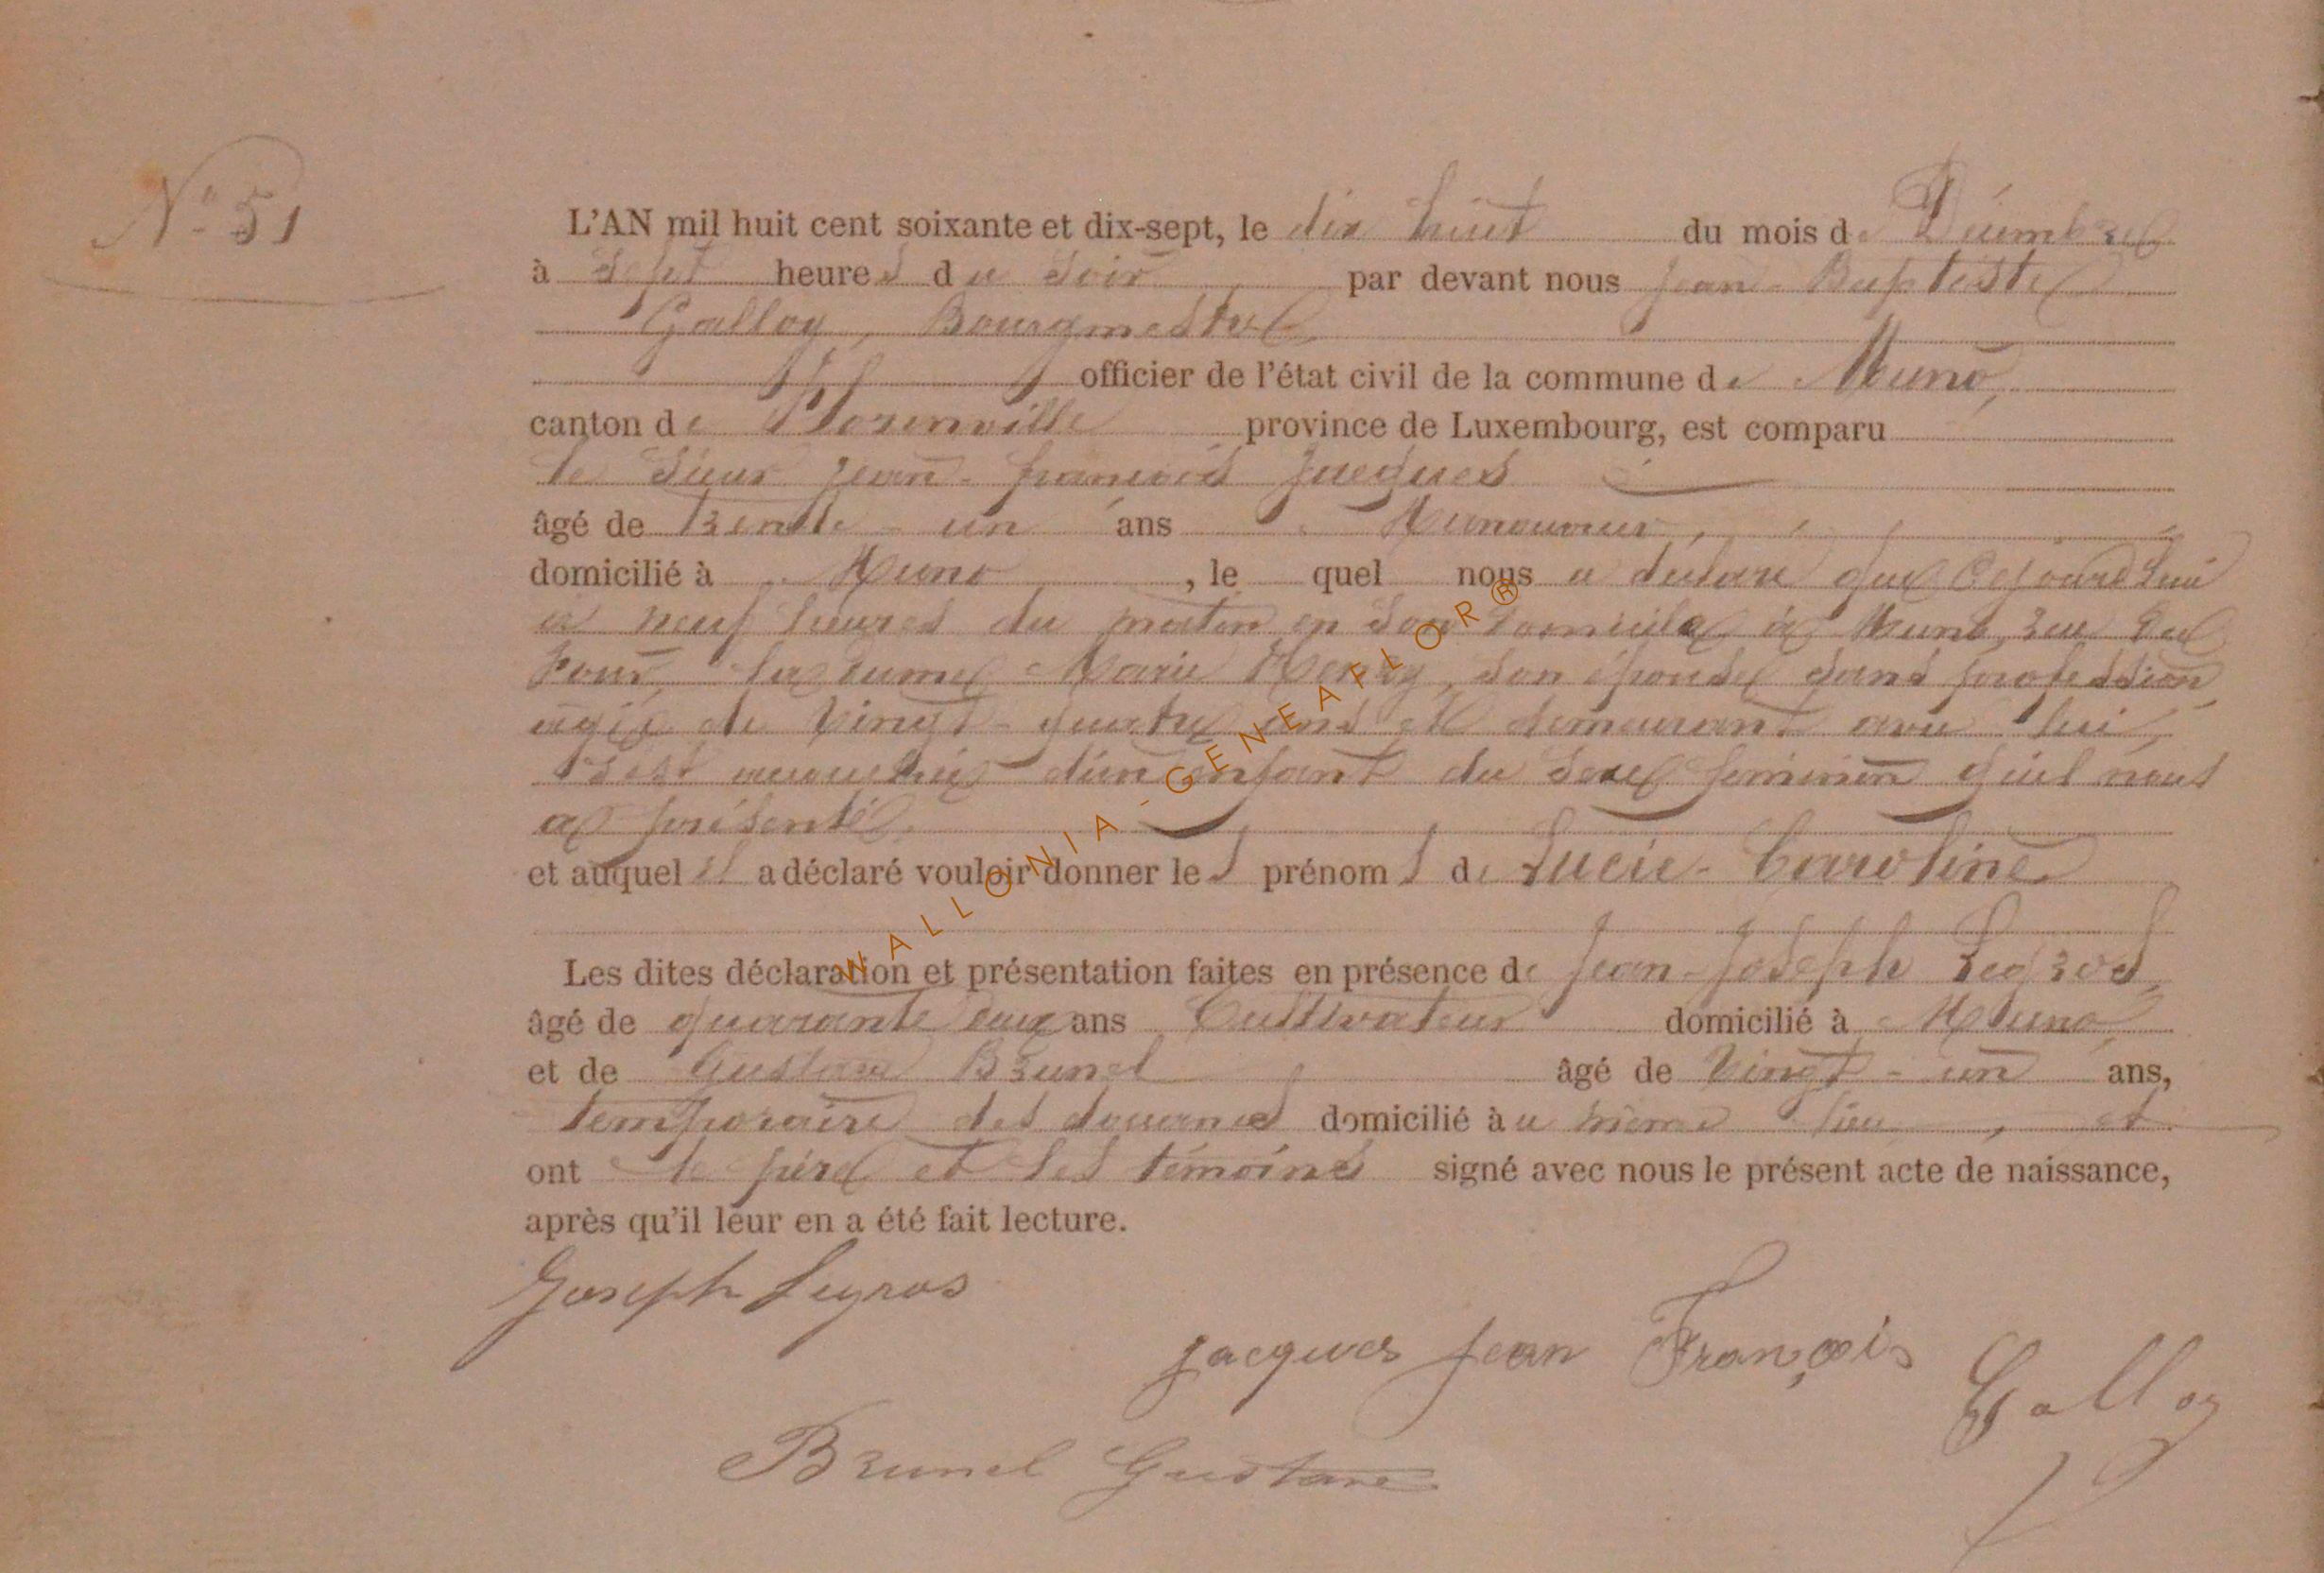 N° 51
L'AN mil huit cent soixante et dix-sept, le dix huit du mois de Décembre
à Sept heures du Soir par devant nous Jean-Baptiste
Galloy, Bourgmestre
officier de l'état civil de la commune de Muno,
canton de Florenville province de Luxembourg, est comparu
le Sieur Jean-françois Jacques
âgé de trente-un ans Manouvrier,
domicilié à Muno, le quel nous a déclaré que Cejourd'hui
à neuf heures du matin en Son Domicile à Muno, rue du
Four, la Dame Marie Henry, Son épouse, Sans profession
âgée de Vingt-quatre ans et demeurant avec lui,
est accouchée d'un enfant du Sexe feminin qu'il nous
a présenté.
et auquel il a déclaré vouloir donner les prénoms de Lucie-Caroline
Les dites déclaration et présentation faites en présence de Jean-Joseph Legros,
âgé de quarante Deux ans Cultivateur domicilié à Muno,
et de Gustave Brunel âgé de Vingt-un ans,
temporaire des douanes domicilié au même lieu, et
ont le père et les témoins signé avec nous le présent acte de naissance,
après qu'il leur en a été fait lecture.
Joseph Legros
Jacques Jean François
Galloy
Brunel Gustave
WALLONIA-GENEAFLOR®